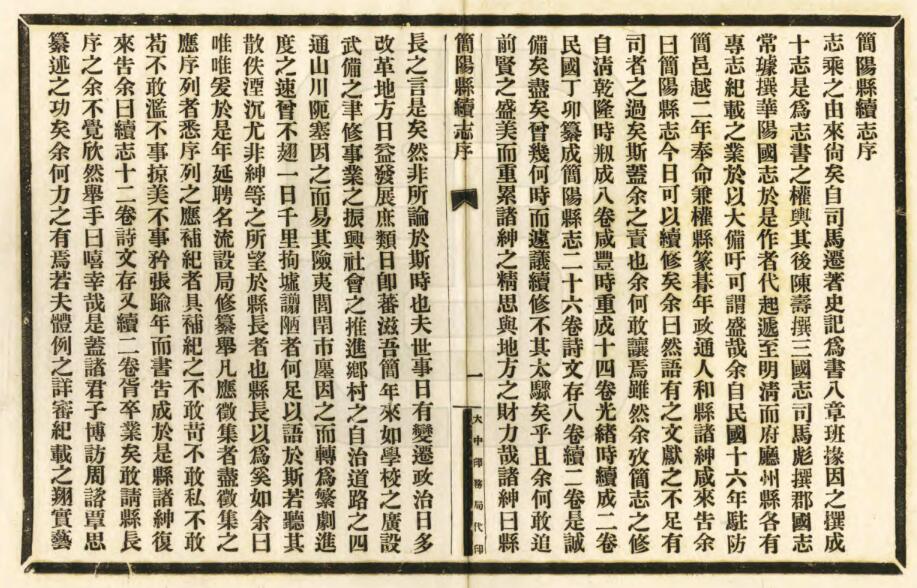 簡陽縣續志序
志乘之由來尚矣自司馬遷著史記為書八章班掾因之撰成
十志是為志書之權輿其後陳壽撰三國志司馬彪撰郡國志
常璩撰華陽國志於是作者代起遞至明清而府廳州縣各有
專志紀載之業於以大備吁可謂盛哉余自民國十六年駐防
簡邑越二年奉命兼權縣篆朞年政通人和縣諸紳咸來告余
曰簡陽縣志今日可以續修矣余曰然語有之文獻之不足有
司者之過矣斯蓋余之責也余何敢讓焉雖然余攷簡志之修
自清乾隆時剏成八卷咸豐時重成十四卷光緒時續成二卷
民國丁卯纂成簡陽縣志二十六卷詩文存八卷續二卷是誠
備矣盡矣曾幾何時而遽議續修不其太驟矣乎且余何敢追
前賢之盛美而重累諸紳之精思與地方之財力哉諸紳曰縣
簡陽縣續志序
一
大中印務局代印
長之言是矣然非所論於斯時也夫世事日有變遷政治日多
改革地方日益發展庶類日卽蕃滋吾簡年來如學校之廣設
武備之聿修事業之振興社會之推進鄉村之自治道路之四
通山川阨塞因之而易其險夷閭閈市廛因之而轉為繁劇進
度之速曾不翅一日千里拘墟謭陋者何足以語於斯若聽其
散佚湮沉尤非紳等之所望於縣長者也縣長以為奚如余曰
唯唯爰於是年延聘名流設局修纂舉凡應徵集者盡徵集之
應序列者悉序列之應補紀者具補紀之不敢苛不敢私不敢
苟不敢濫不事掠美不事矜張踰年而書告成於是縣諸紳復
來告余曰續志十二卷詩文存又續二卷胥卒業矣敢請縣長
序之余不覺欣然舉手曰嘻幸哉是蓋諸君子博訪周諮覃思
纂述之功矣余何力之有焉若夫體例之詳審紀載之翔實藝